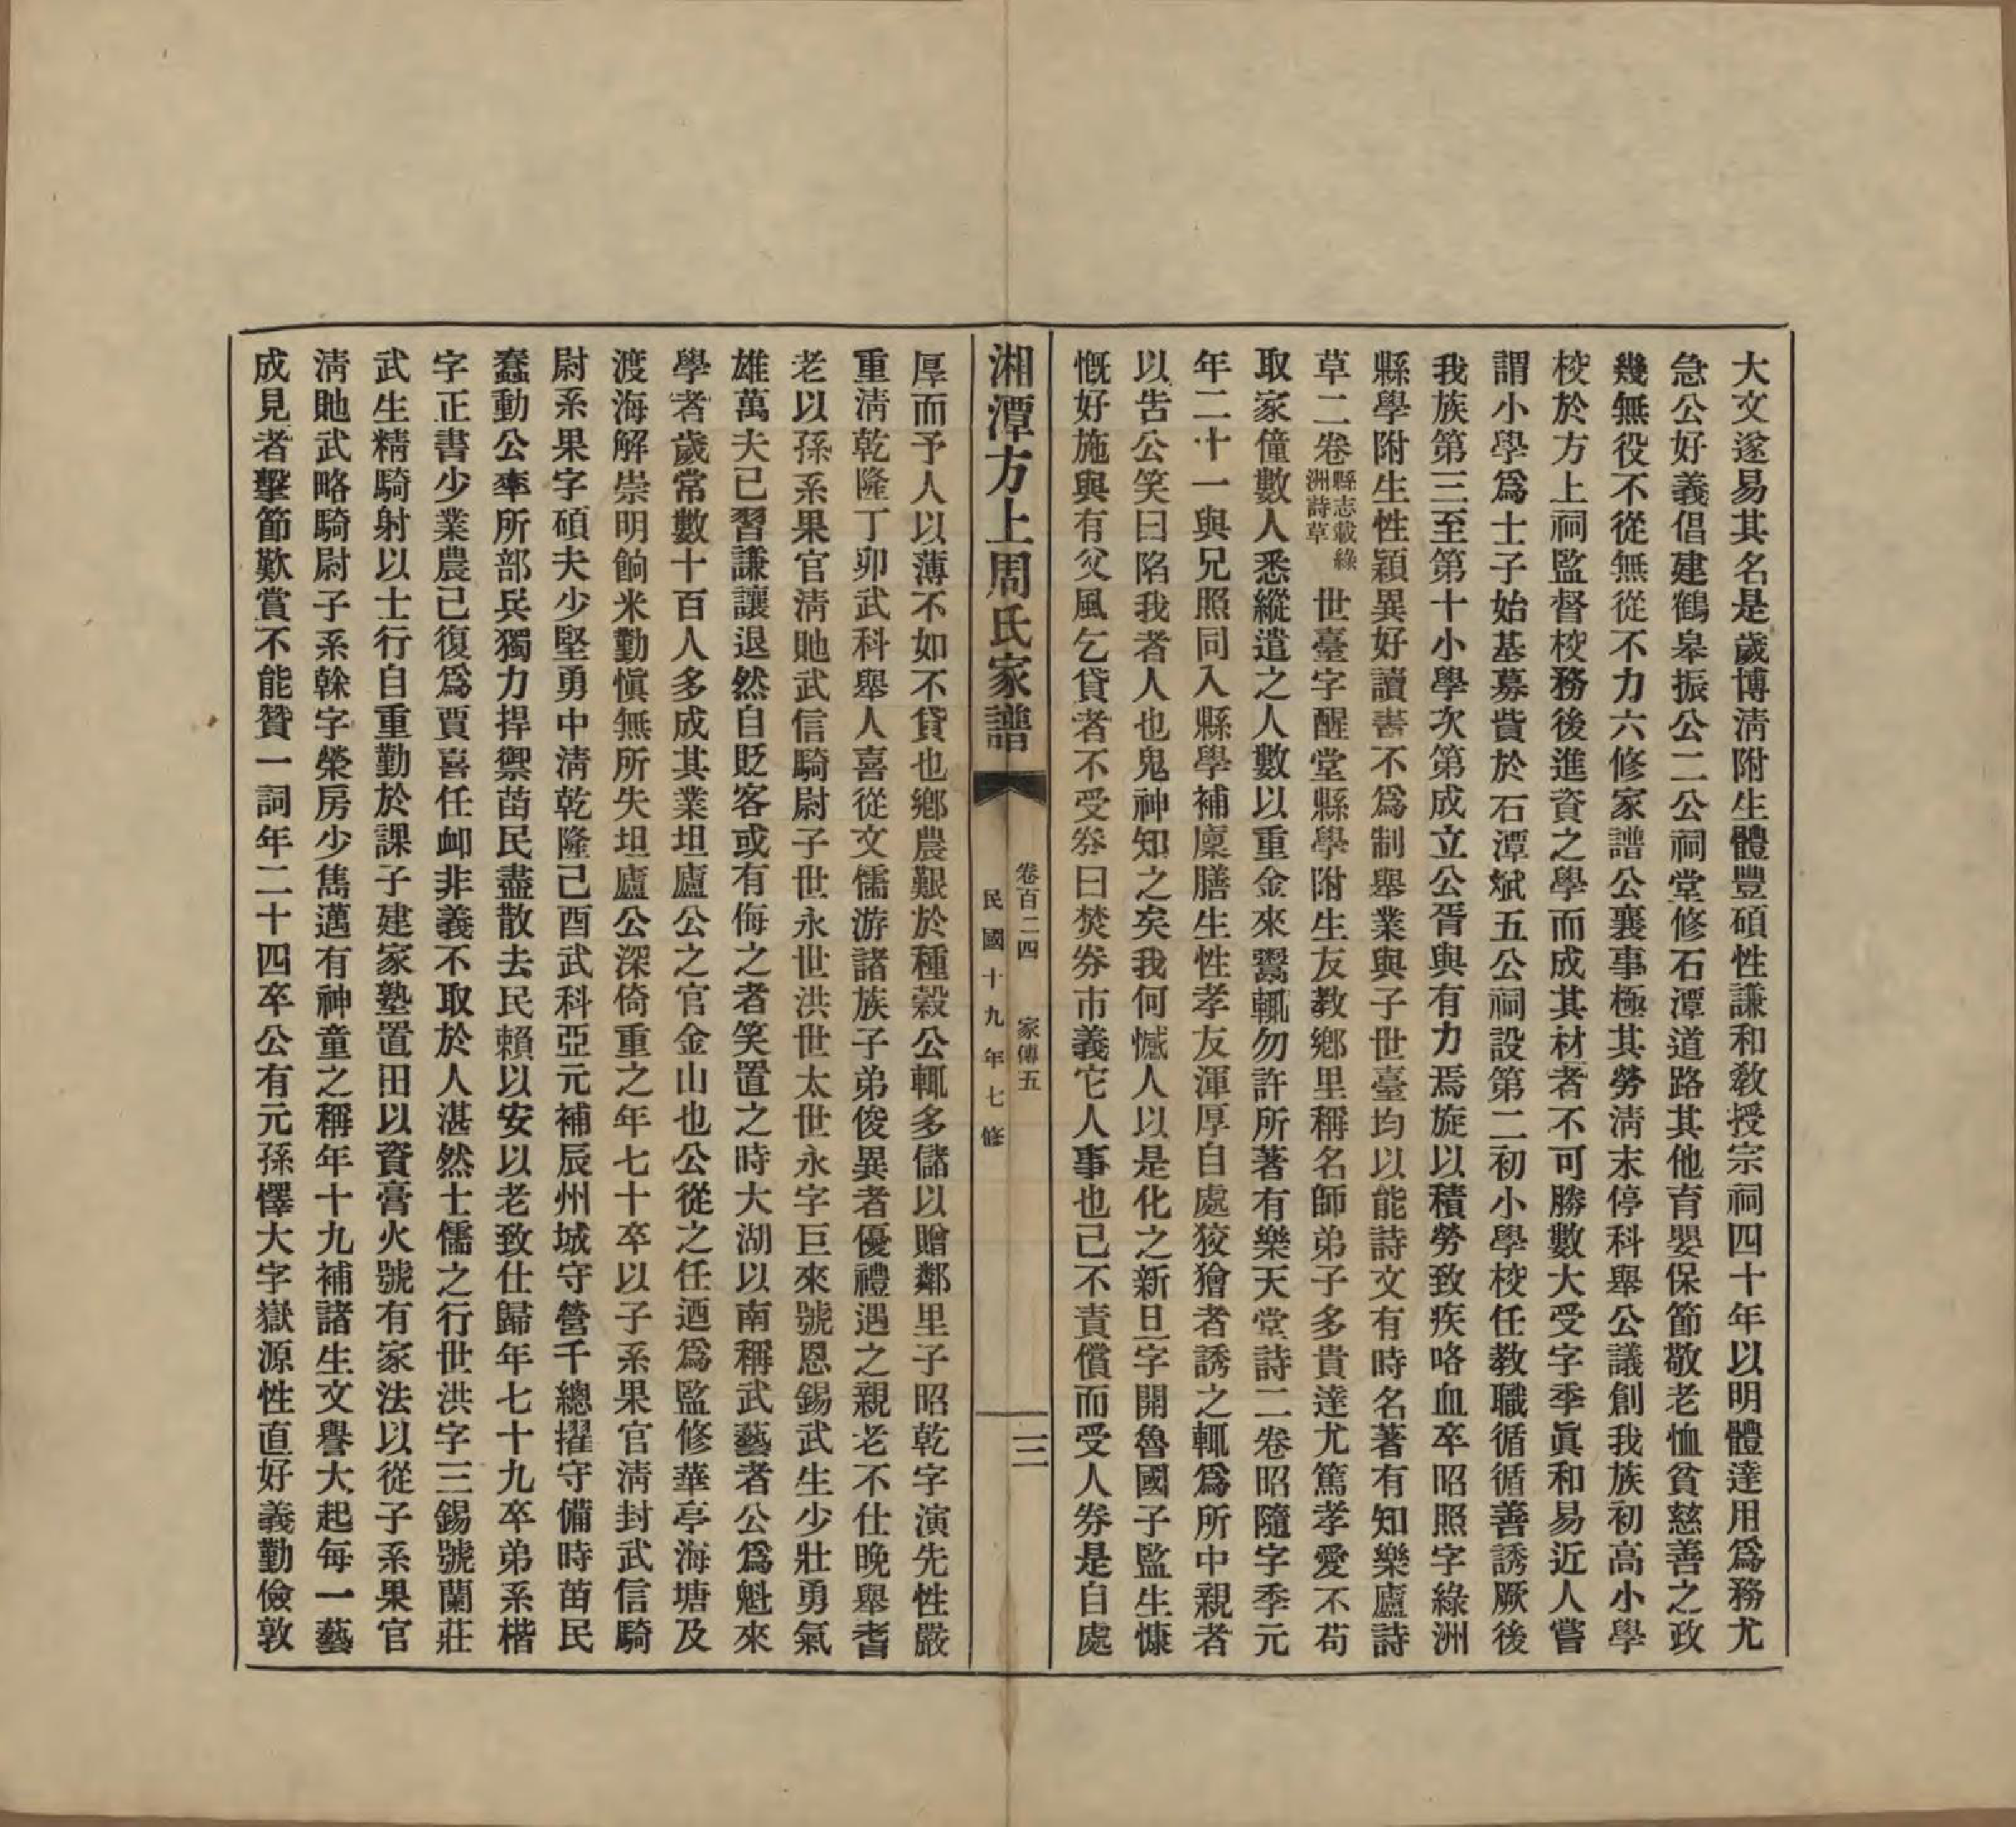 大文遂易其名是歲博淸附生體豐碩性謙和敎授宗祠四十年以明體達用爲務尤
急公好義倡建鶴皋振公二公祠堂修石潭道路其他育嬰保節敬老恤貧慈善之政
幾無役不從無從不力六修家譜公襄事極其勞淸末停科舉公議創我族初高小學
校於方上祠監督校務後進資之學而成其材者不可勝數大受字季眞和易近人嘗
謂小學爲士子始基募貲於石潭斌五公祠設第二初小學校任教職循循善誘厥後
我族第三至第十小學次第成立公胥與有力焉旋以積勞致疾咯血卒昭照字綠洲
縣學附生性穎異好讀書不爲制舉業與子世臺均以能詩文有時名著有知樂廬詩
草二卷縣志載綠洲詩草世臺字醒堂縣學附生友教鄉里稱名師弟子多貴達尤篤孝愛不苟
取家僮數人悉縱遣之人數以重金來鬻輒勿許所著有樂天堂詩二卷昭隨字季元
年二十一與兄照同入縣學補廩膳生性孝友渾厚自處狡獪者誘之輒爲所中親者
以告公笑曰陷我者人也鬼神知之矣我何憾人以是化之新旦字開魯國子監生慷
慨好施與有父風乞貸者不受券曰焚券市義它人事也己不責償而受人券是自處
湘潭方上周氏家譜
卷百二四　家傳五
民國十九年七修
三
厚而予人以薄不如不貸也鄉農艱於種穀公輒多儲以贈鄰里子昭乾字演先性嚴
重淸乾隆丁卯武科舉人喜從文儒游諸族子弟俊異者優禮遇之親老不仕晚舉耆
老以孫系果官淸貤武信騎尉子世永世洪世太世永字巨來號恩錫武生少壯勇氣
雄萬夫已習謙讓退然自貶客或有侮之者笑置之時大湖以南稱武藝者公爲魁來
學者歲常數十百人多成其業坦廬公之官金山也公從之任迺爲監修華亭海塘及
渡海解崇明餉米勤愼無所失坦廬公深倚重之年七十卒以子系果官淸封武信騎
尉系果字碩夫少堅勇中淸乾隆己酉武科亞元補辰州城守營千總擢守備時苗民
蠢動公率所部兵獨力捍禦苗民盡散去民賴以安以老致仕歸年七十九卒弟系楷
字正書少業農已復爲賈喜任卹非義不取於人湛然士儒之行世洪字三錫號蘭莊
武生精騎射以士行自重勤於課子建家塾置田以資膏火號有家法以從子系果官
淸貤武略騎尉子系榦字榮房少雋邁有神童之稱年十九補諸生文譽大起每一藝
成見者擊節歎賞不能贊一詞年二十四卒公有元孫懌大字嶽源性直好義勤儉敦